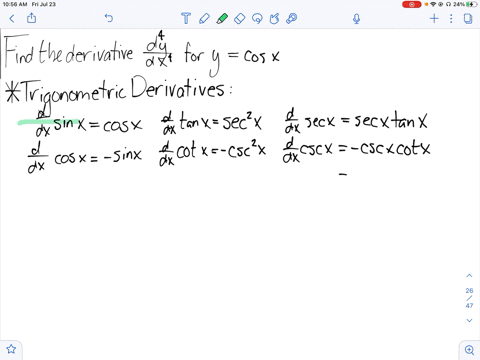 10:56 AM Fri Jul 23
24%
Find the derivative d⁴y/dx⁴ for y = cos x
*Trigonometric Derivatives:
d/dx sin x = cos x d/dx tan x = sec²x d/dx sec x = sec x tan x
d/dx cos x = -sin x d/dx cot x = -csc²x d/dx csc x = -csc x cot x
=
26
/
47